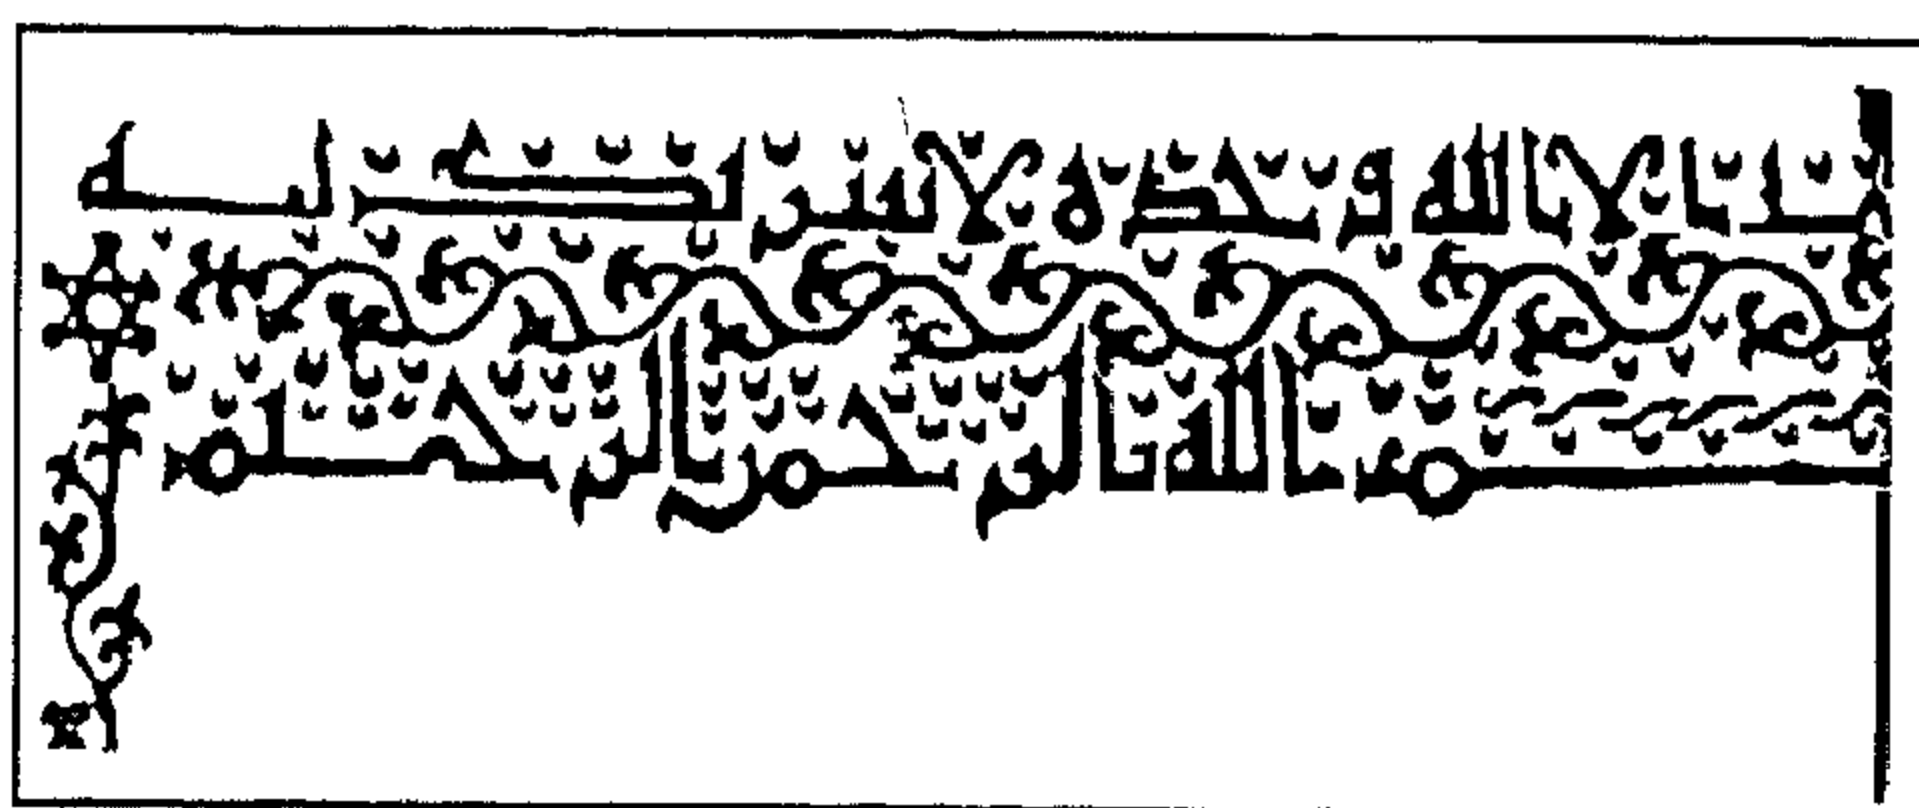 الا الله وحده لا شريك له
بسم الله الرحمن الرحيم